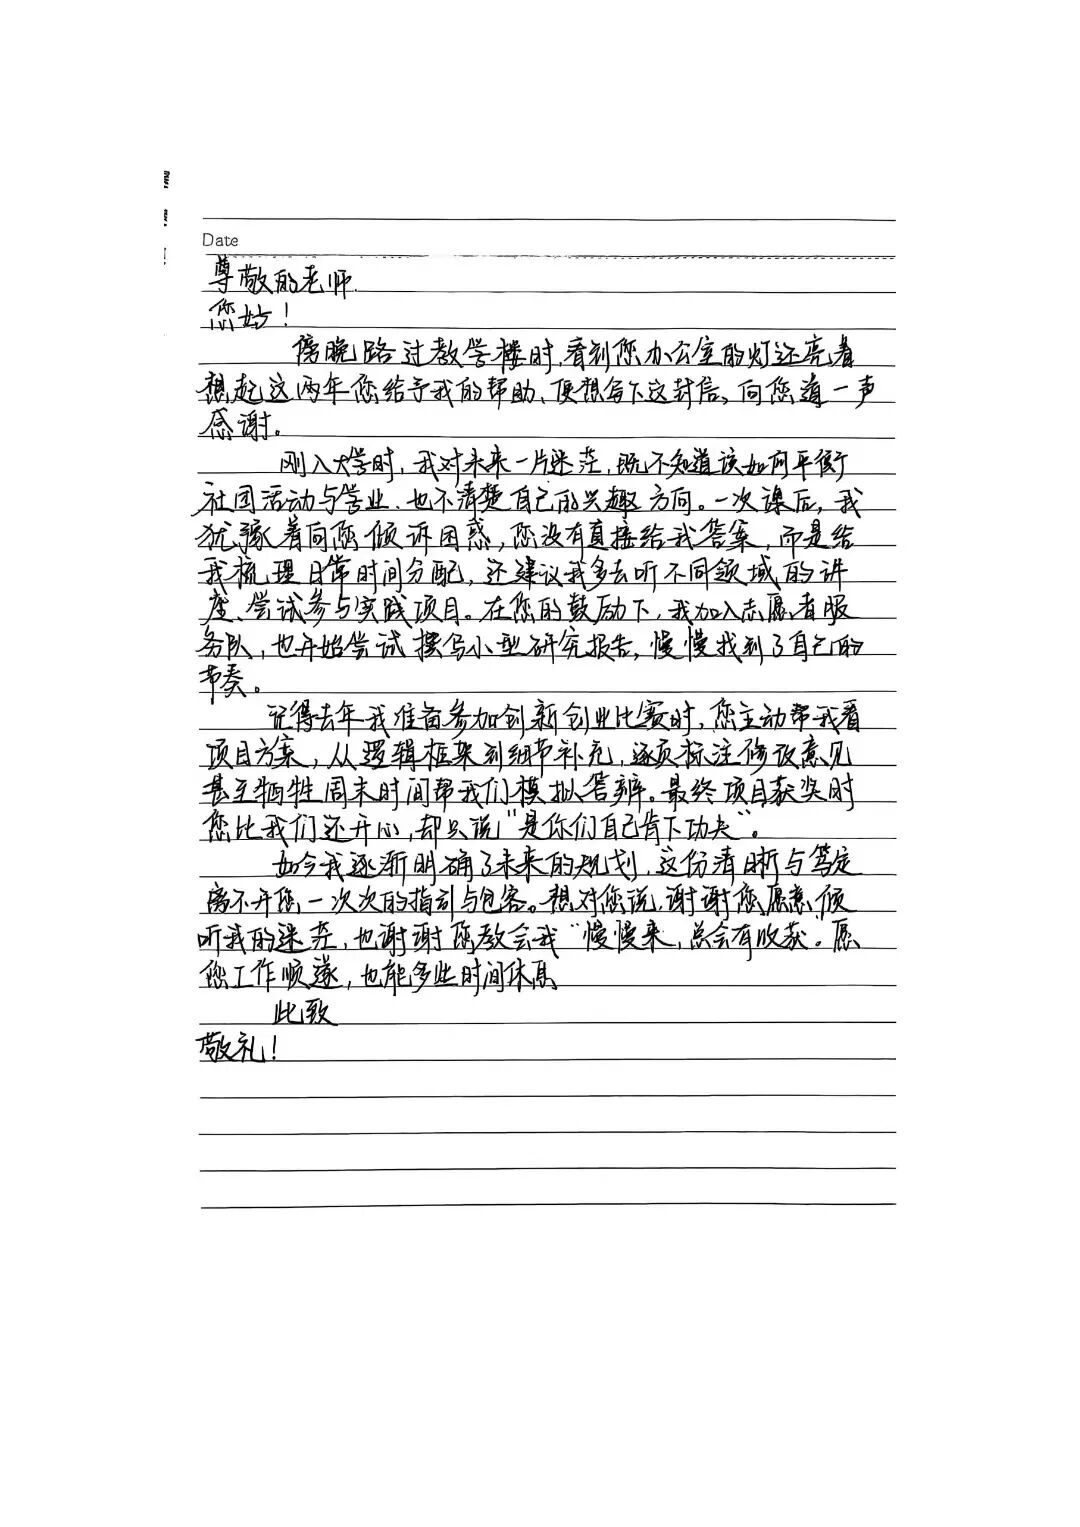 Date
尊敬的老师.
您好!
傍晚路过教学楼时,看到您办公室的灯还亮着
想起这两年您给予我的帮助、便想写下这封信,向您道一声
感谢。
刚入大学时,我对未来一片迷茫,既不知道该如何平衡
社团活动与学业、也不清楚自己的兴趣方向。一次课后,我
犹豫着向您倾诉困惑,您没有直接给我答案,而是给
我梳理日常时间分配,还建议我多去听不同领域的讲
座、尝试参与实践项目。在您的鼓励下,我加入志愿者服
务队,也开始尝试撰写小型研究报告,慢慢找到了自己的
节奏。
记得去年我准备参加创新创业比赛时,您主动帮我看
项目方案,从逻辑框架到细节补充,逐页标注修改意见
甚至牺牲周末时间帮我们模拟答辩。最终项目获奖时
您比我们还开心,却只说“是你们自己肯下功夫”。
如今我逐渐明确了未来的规划,这份清晰与笃定
离不开您一次次的指引与包容。想对您说,谢谢您愿意倾
听我的迷茫,也谢谢您教会我“慢慢来,总会有收获”。愿
您工作顺遂,也能多些时间休息
此致
敬礼!